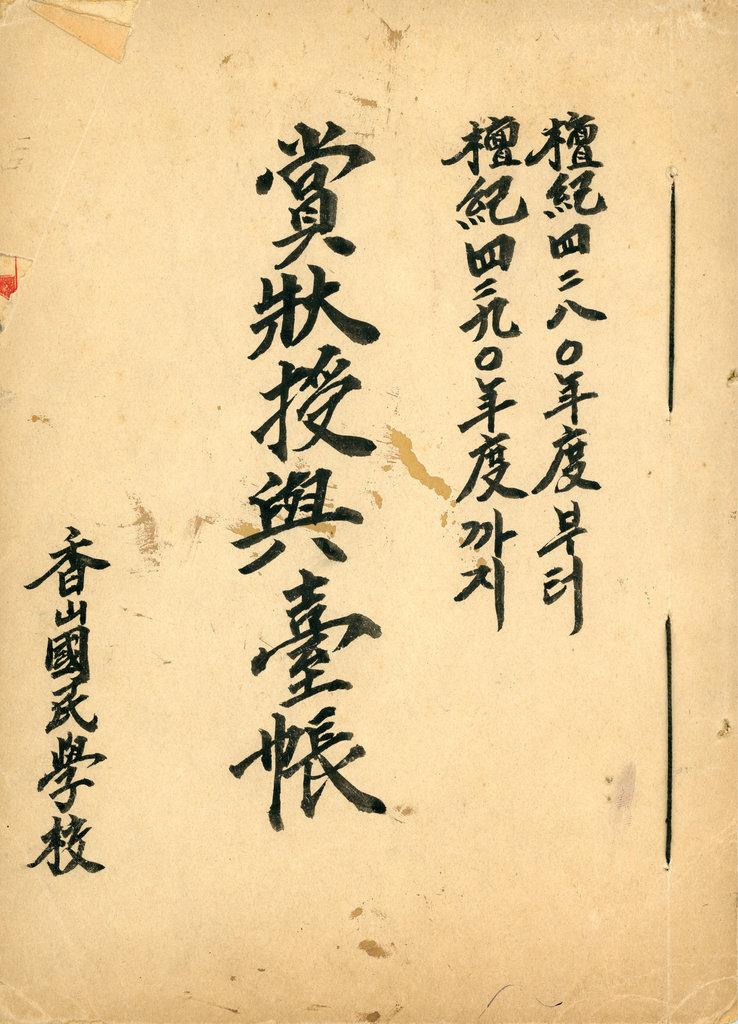 檀紀四二八〇年度부터
檀紀四二九〇年度까지
賞狀授與臺帳
香山國民學校